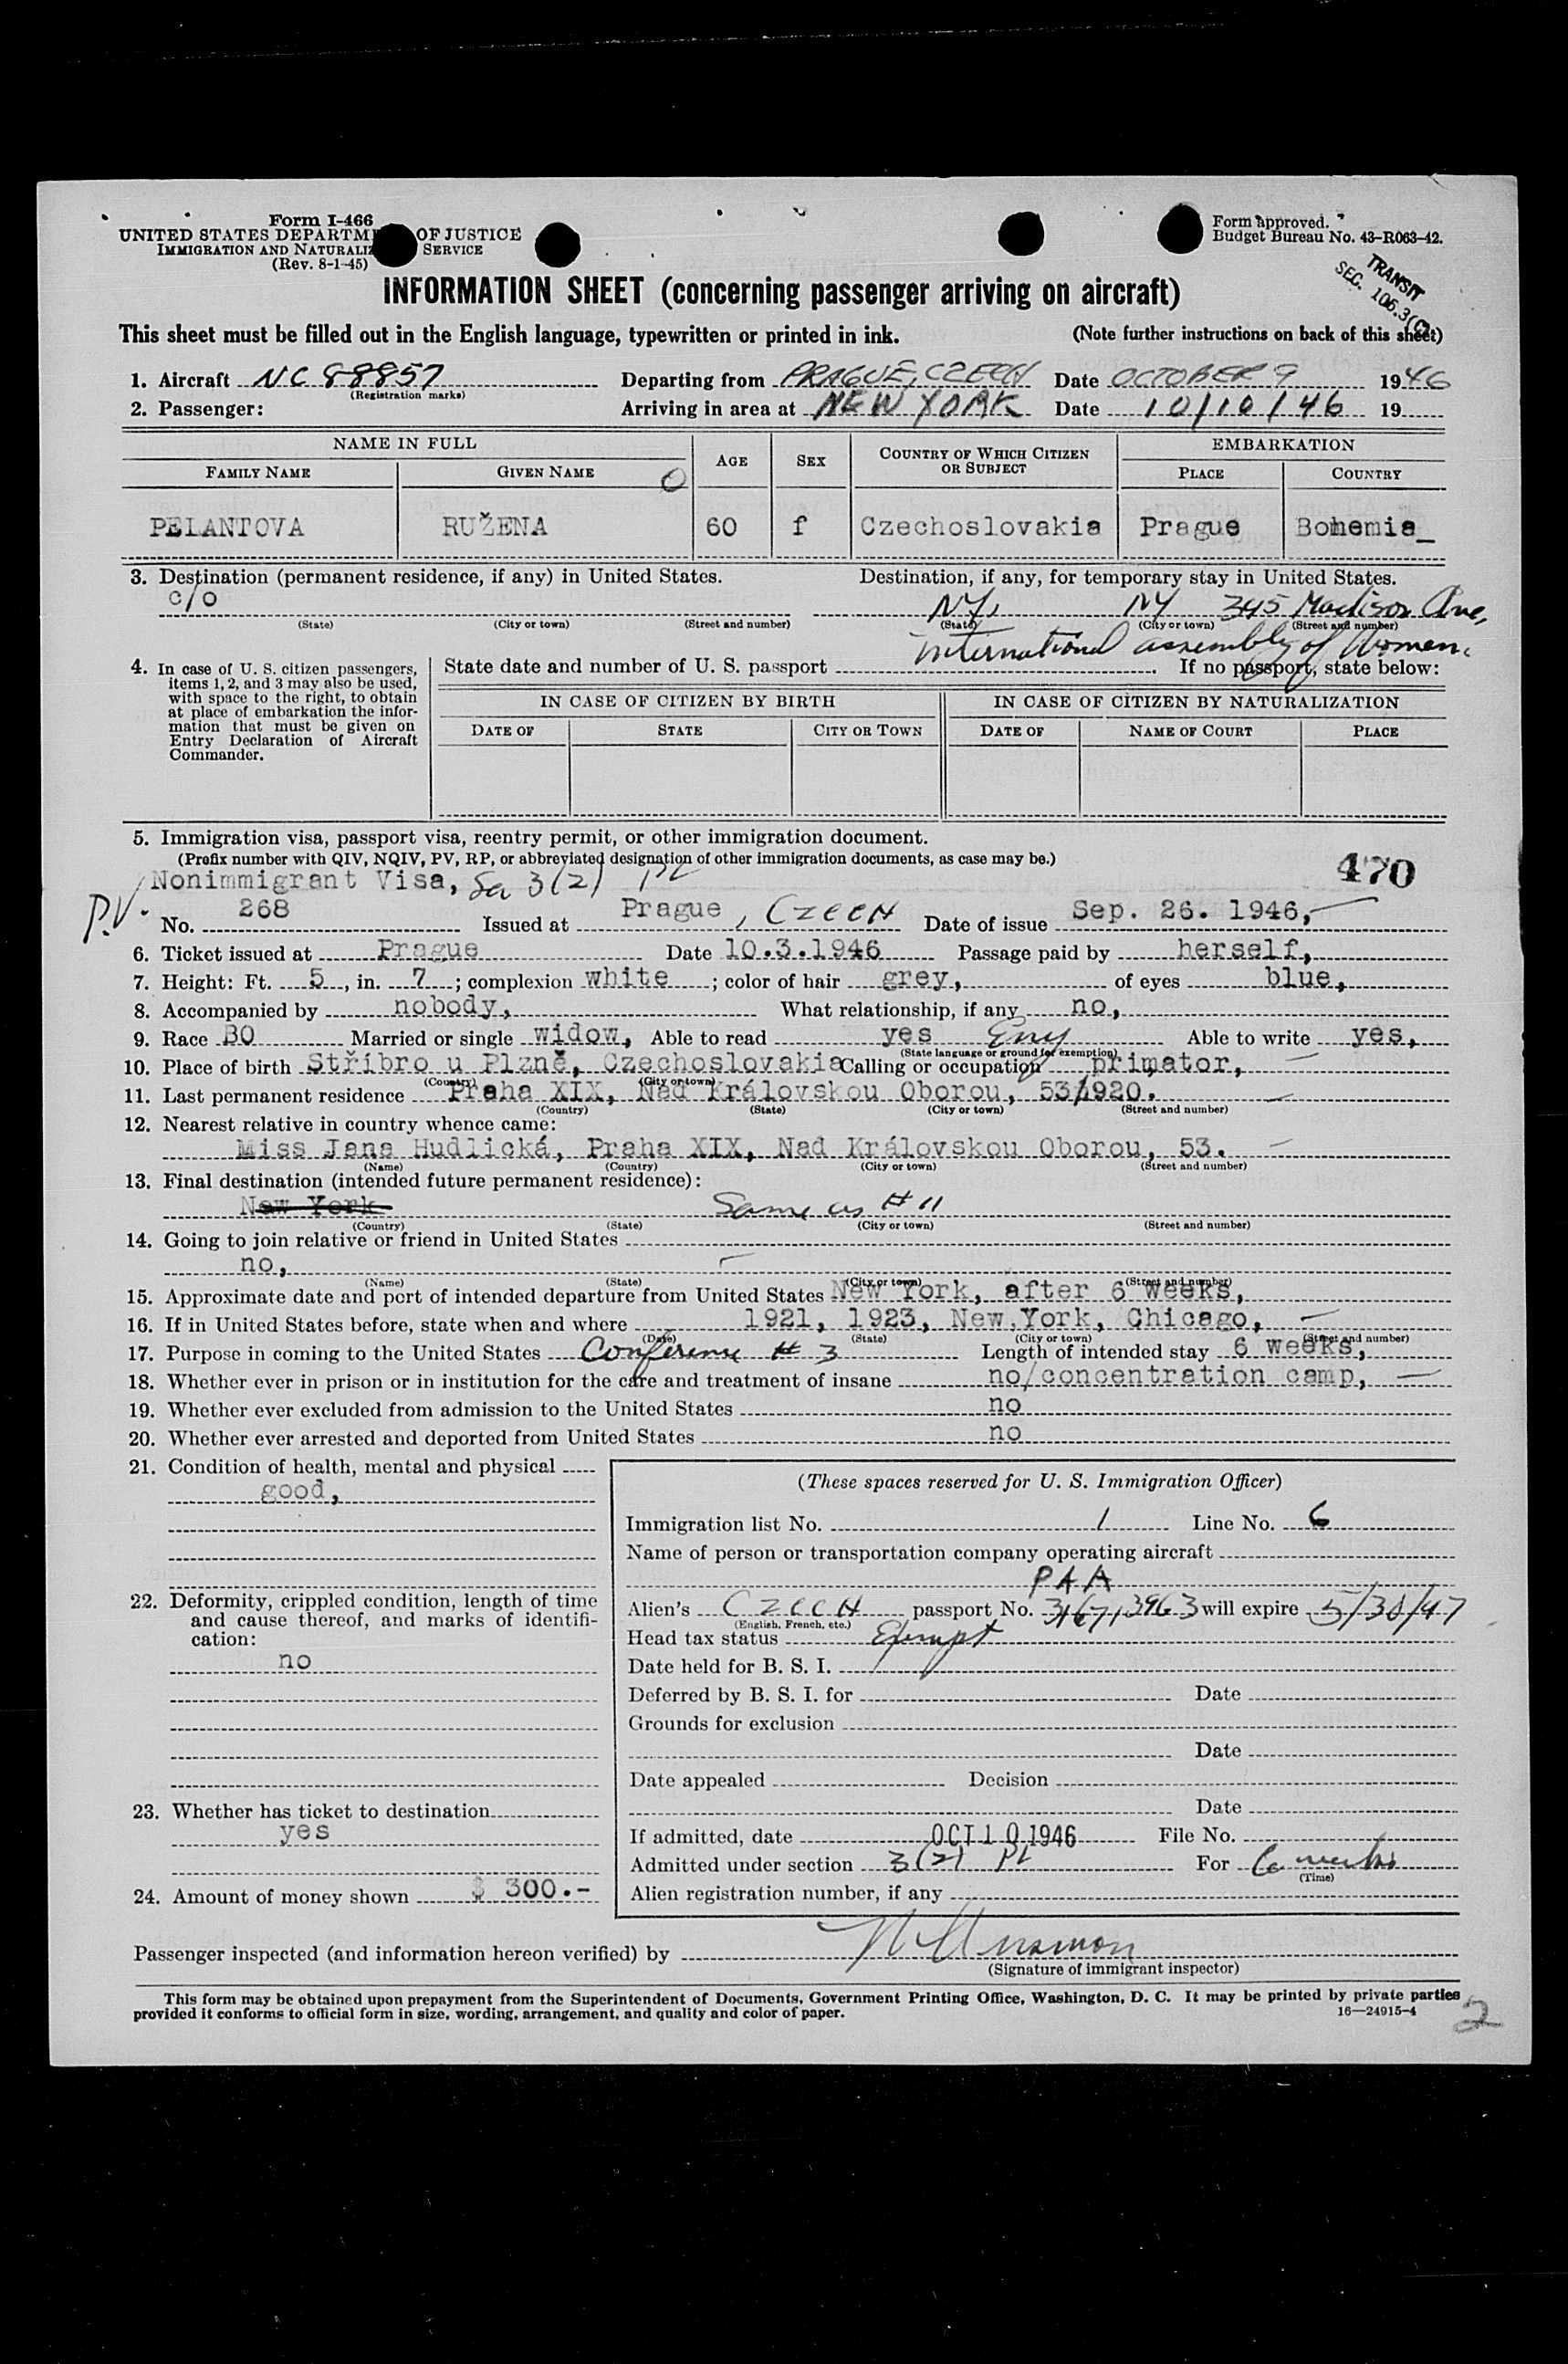 Form I-466
UNITED STATES DEPARTME OF JUSTICE
IMMIGRATION AND NATURALIZ SERVICE
(Rev. 8-1-45)
Form approved.
Budget Bureau No. 43-R063-42.
TRANSIT
SEC. 106.3(
INFORMATION SHEET (concerning passenger arriving on aircraft)
This sheet must be filled out in the English language, typewritten or printed in ink. (Note further instructions on back of this sheet)
1. Aircraft NC 88857 Departing from PRAGUE, CZECH Date OCTOBER 9 1946
(Registration marks)
2. Passenger: Arriving in area at NEW YORK Date 10/10/46 19
NAME IN FULL AGE SEX COUNTRY OF WHICH CITIZEN OR SUBJECT EMBARKATION
FAMILY NAME GIVEN NAME PLACE COUNTRY
PELANTOVA RUŽENA 60 f Czechoslovakia Prague Bohemia_
3. Destination (permanent residence, if any) in United States. Destination, if any, for temporary stay in United States.
c/o NY, NY 345 Madison Ave,
(State) (City or town) (Street and number) (State) (City or town) (Street and number)
international assembly of Women.
4. In case of U. S. citizen passengers, items 1, 2, and 3 may also be used, with space to the right, to obtain at place of embarkation the information that must be given on Entry Declaration of Aircraft Commander.
State date and number of U. S. passport If no passport, state below:
IN CASE OF CITIZEN BY BIRTH IN CASE OF CITIZEN BY NATURALIZATION
DATE OF STATE CITY OR TOWN DATE OF NAME OF COURT PLACE
5. Immigration visa, passport visa, reentry permit, or other immigration document.
(Prefix number with QIV, NQIV, PV, RP, or abbreviated designation of other immigration documents, as case may be.) 470
Nonimmigrant Visa, 3(2)
P.V. No. 268 Issued at Prague, CZECH Date of issue Sep. 26. 1946,
6. Ticket issued at Prague Date 10.3.1946 Passage paid by herself,
7. Height: Ft. 5, in. 7; complexion white; color of hair grey, of eyes blue,
8. Accompanied by nobody, What relationship, if any no,
9. Race BO Married or single widow, Able to read yes Eng Able to write yes,
(State language or ground for exemption)
10. Place of birth Stříbro u Plzně, Czechoslovakia Calling or occupation primator,
(Country) (City or town)
11. Last permanent residence Praha XIX, Nad Královskou Oborou, 53/1920.
(Country) (State) (City or town) (Street and number)
12. Nearest relative in country whence came:
Miss Jana Hudlická, Praha XIX, Nad Královskou Oborou, 53.
(Name) (Country) (City or town) (Street and number)
13. Final destination (intended future permanent residence):
New York Same as #11
(Country) (State) (City or town) (Street and number)
14. Going to join relative or friend in United States
no,
(Name) (State) (City or town) (Street and number)
15. Approximate date and port of intended departure from United States New York, after 6 weeks,
16. If in United States before, state when and where 1921, 1923, New York, Chicago,
(Date) (State) (City or town) (Street and number)
17. Purpose in coming to the United States Conference #3 Length of intended stay 6 weeks,
18. Whether ever in prison or in institution for the care and treatment of insane no/concentration camp,
19. Whether ever excluded from admission to the United States no
20. Whether ever arrested and deported from United States no
21. Condition of health, mental and physical
good,
22. Deformity, crippled condition, length of time
and cause thereof, and marks of identifi-
cation:
no
23. Whether has ticket to destination
yes
24. Amount of money shown $ 300.-
(These spaces reserved for U. S. Immigration Officer)
Immigration list No. 1 Line No. 6
Name of person or transportation company operating aircraft
PAA
Alien's CZECH passport No. 31671 3963 will expire 5/30/47
(English, French, etc.)
Head tax status Exempt
Date held for B. S. I.
Deferred by B. S. I. for Date
Grounds for exclusion
Date
Date appealed Decision
Date
If admitted, date OCT 10 1946 File No.
Admitted under section 3(2) For 6 weeks
(Time)
Alien registration number, if any
Passenger inspected (and information hereon verified) by
(Signature of immigrant inspector)
This form may be obtained upon prepayment from the Superintendent of Documents, Government Printing Office, Washington, D. C. It may be printed by private parties
provided it conforms to official form in size, wording, arrangement, and quality and color of paper. 16—24915-4
2